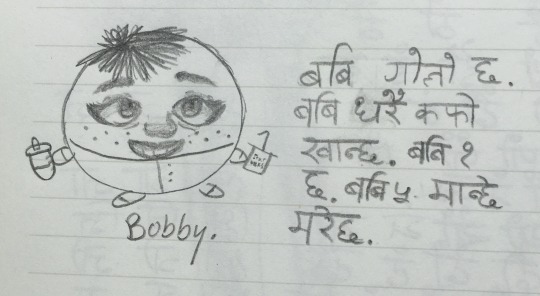 बबि गोलो छ.
बबि धेरै कफी
खान्छ. बबि १
छ. बबि ५ मान्छे
मरेछ.
Bobby.